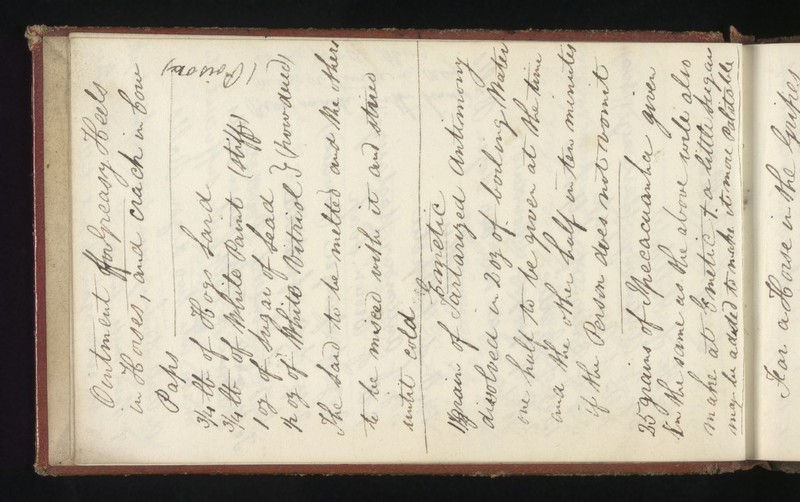 Ointment for Greasy Heels
in Horses, and crack in Cow
Paps
(Poison)
3/4 lb of Hogs Lard
3/4 lb of White Paint (stiff)
1 oz of Sugar of Lead }
1/2 oz of White Vitriol } (powdered)
The Lard to be melted and the others
to be mixed with it and stired
until cold
Emetic
grain of Tartarized Antimony
disolved in 2 oz of boiling Water
one half to be given at the time
and the other half in ten minutes
if the Person does not vomit
25 grains of Ipecacuanha given
in the same as the above will also
make at Emetic & a little Sugar
may be added to make it more Palatable
For a Horse in the Gripes